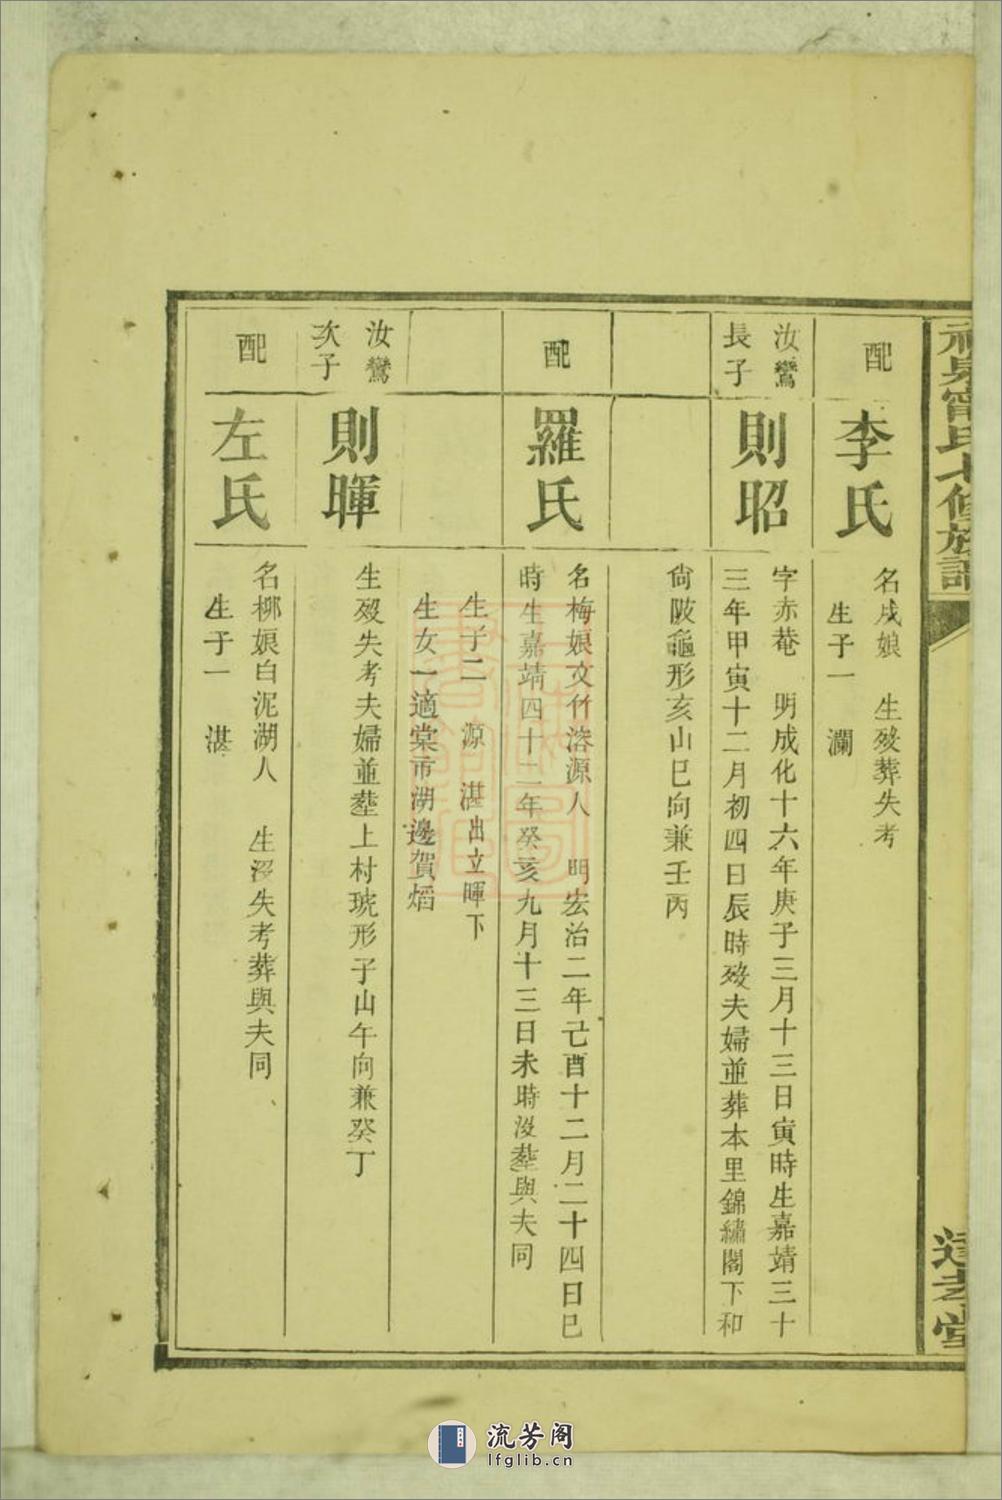 甯氏七修族譜
達孝堂
配
李氏
名戌娘 生歿葬失考
生子一 瀾
汝鸞
長子
則昭
字赤菴 明成化十六年庚子三月十三日寅時生嘉靖三十
三年甲寅十二月初四日辰時歿夫婦並葬本里錦繡閣下和
尙陂龜形亥山巳向兼壬丙
配
羅氏
名梅娘文竹溶源人 明宏治二年己酉十二月二十四日巳
時生嘉靖四十二年癸亥九月十三日未時沒塟與夫同
生子二 源 湛出立暉下
生女一適棠市湖邊賀熖
汝鸞
次子
則暉
生歿失考夫婦並塟上村琥形子山午向兼癸丁
配
左氏
名柳娘白泥湖人 生沒失考葬與夫同
生子一 湛
流芳阁
lfglib.cn